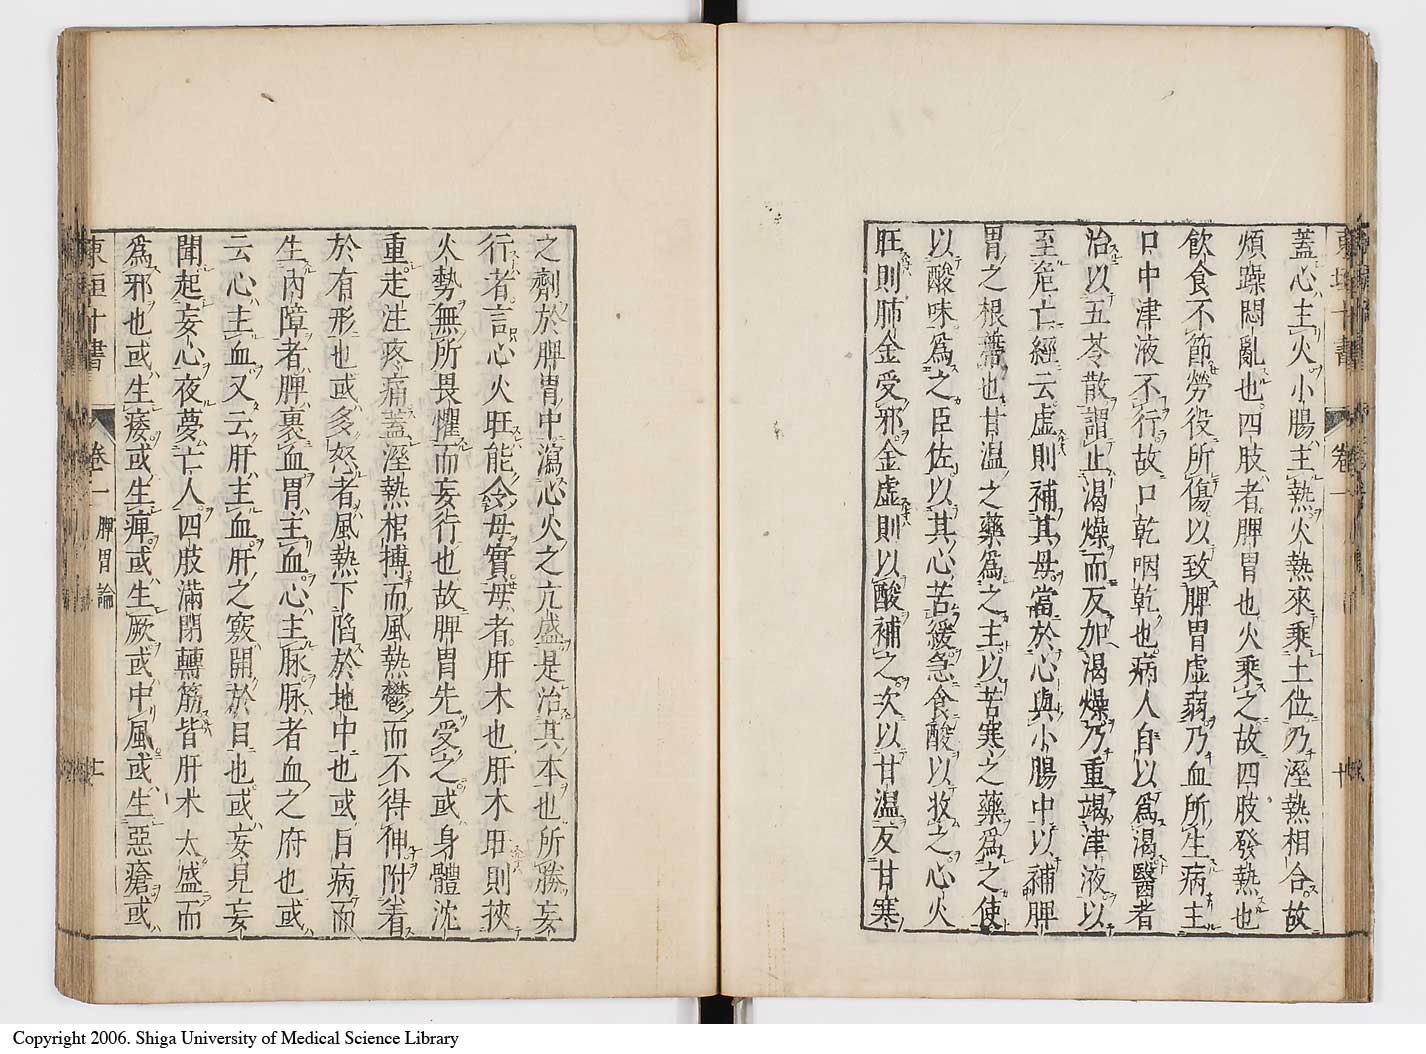 蓋心主火小腸主熱火熱來乘土位乃溼熱相合故
煩躁悶亂也四肢者脾胃也火乘之故四肢發熱也
飲食不節勞役所傷以致脾胃虛弱乃血所生病主
口中津液不行故口乾咽乾也病人自以爲渴醫者
治以五苓散謂止渴燥而反加渴燥乃重竭津液以
至危亡經云虛則補其母當於心與小腸中以補脾
胃之根蔕也甘温之藥爲之主以苦寒之藥爲之使
以酸味爲之臣佐以其心苦緩急食酸以收之心火
旺則肺金受邪金虛則以酸補之次以甘温及甘寒
東垣十書
卷一
十
之劑於脾胃中瀉心火之亢盛是治其本也所勝妄
行者言心火旺能令母實母者肝木也肝木旺則挾
火勢無所畏懼而妄行也故脾胃先受之或身體沈
重走注疼痛蓋溼熱相搏而風熱鬱而不得伸附着
於有形也或多怒者風熱下陷於地中也或目病而
生內障者脾裹血胃主血心主脉脉者血之府也或
云心主血又云肝主血肝之竅開於目也或妄見妄
聞起妄心夜夢亡人四肢滿閉轉筋皆肝木太盛而
爲邪也或生痿或生痺或生厥或中風或生惡瘡或
東垣十書
卷一
脾胃論
十一
Copyright 2006. Shiga University of Medical Science Library